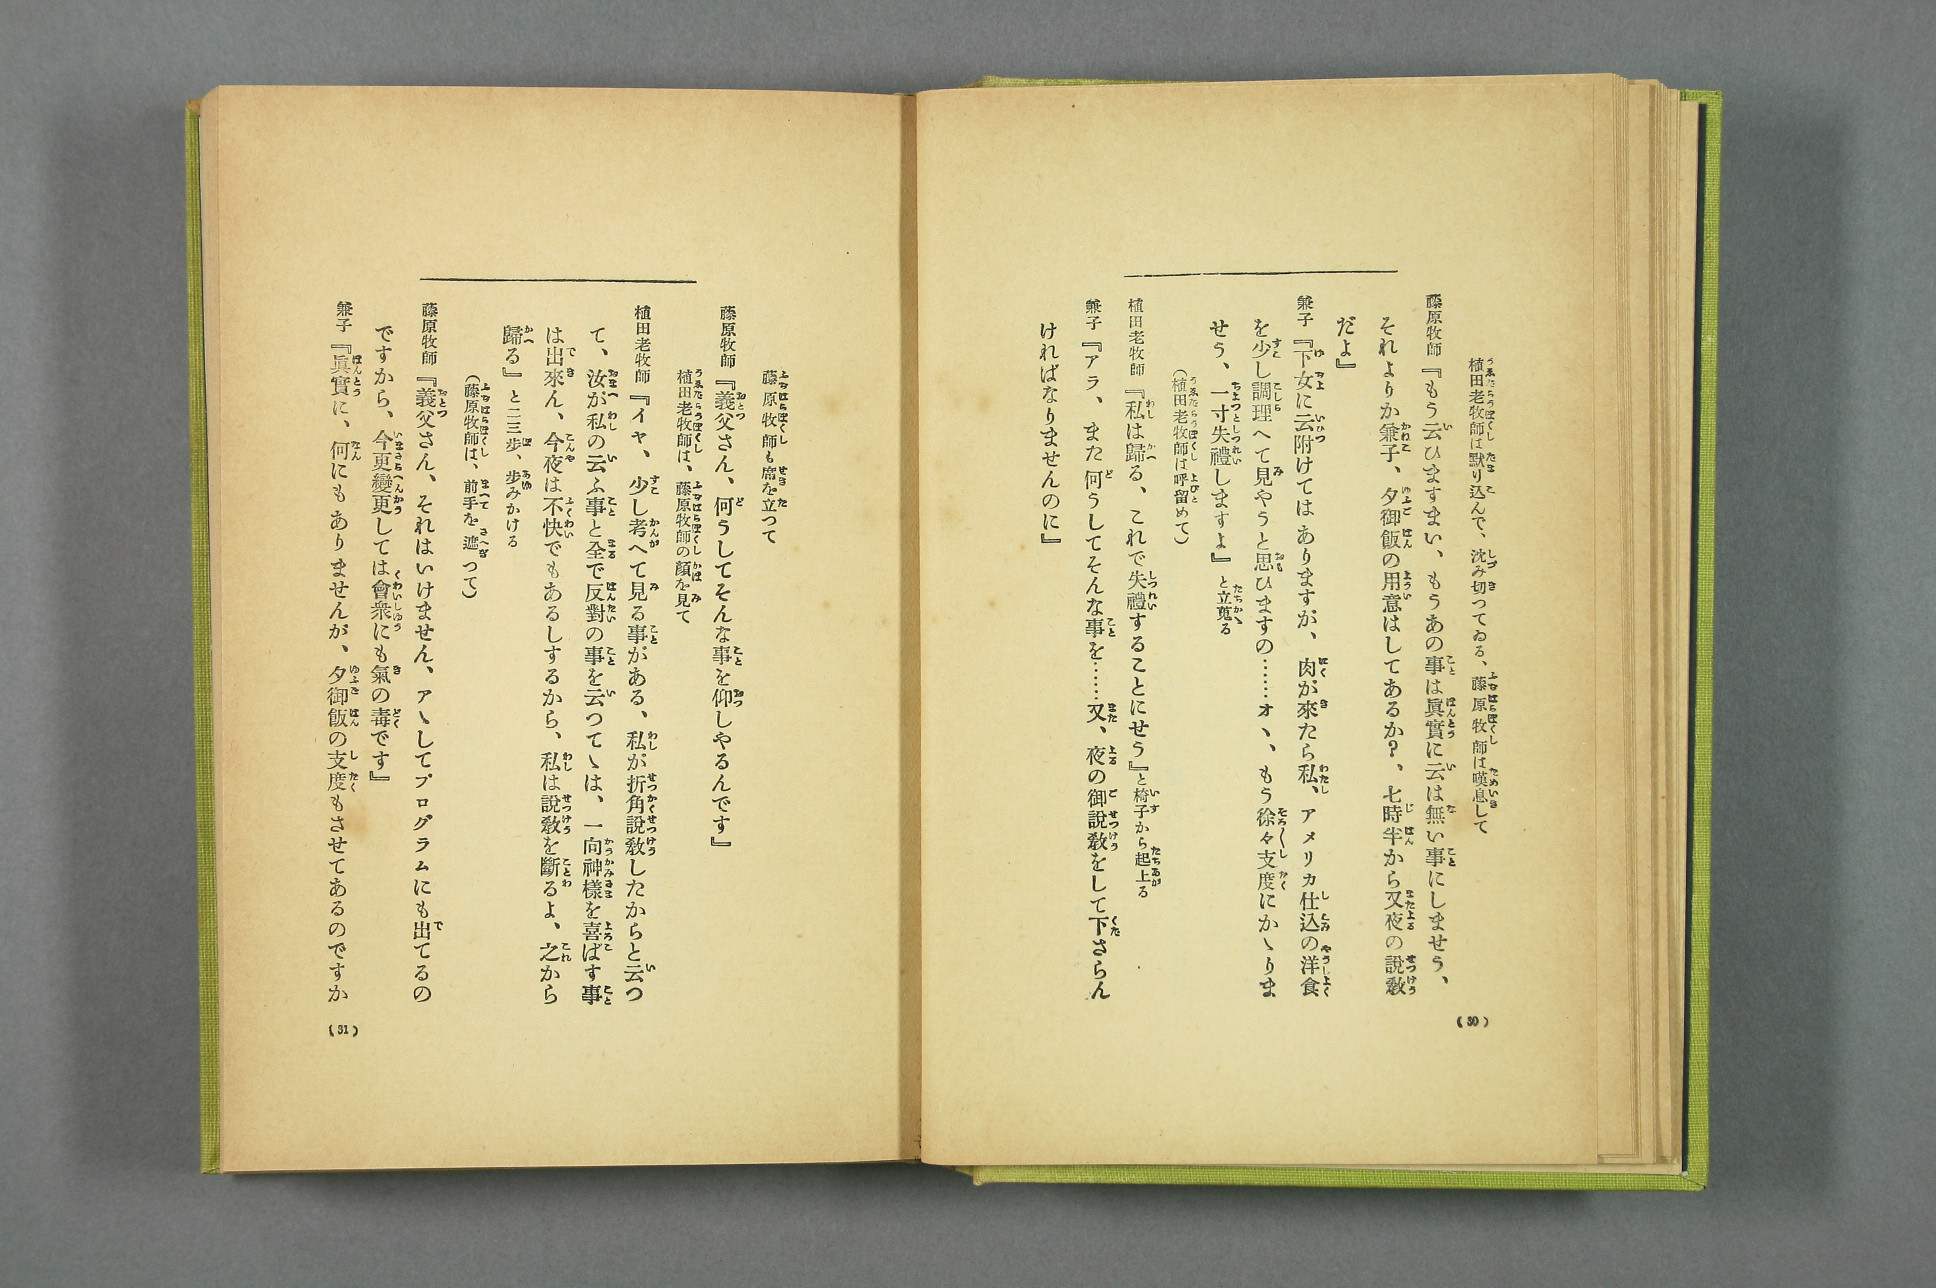 植田老牧師は默り込んで、沈み切つてゐる、藤原牧師は嘆息して
藤原牧師『もう云ひますまい、もうあの事は眞實に云は無い事にしませう、
それよりか兼子、夕御飯の用意はしてあるか?、七時半から又夜の說敎
だよ』
兼子『下女に云附けてはありますが、肉が來たら私、アメリカ仕込の洋食
を少し調理へて見やうと思ひますの……オヽ、もう徐々支度にかヽりま
せう、一寸失禮しますよ』と立蒐る
(植田老牧師は呼留めて)
植田老牧師『私は歸る、これで失禮することにせう』と椅子から起上る
兼子『アラ、また何うしてそんな事を……又、夜の御說敎をして下さらん
ければなりませんのに』
(30)
藤原牧師も席を立つて
藤原牧師『義父さん、何うしてそんな事を仰しやるんです』
植田老牧師は、藤原牧師の顏を見て
植田老牧師『イヤ、少し考へて見る事がある、私が折角說敎したからと云つ
て、汝が私の云ふ事と全で反對の事を云つてヽは、一向神樣を喜ばす事
は出來ん、今夜は不快でもあるしするから、私は說敎を斷るよ、之から
歸る』と二三步、步みかける
(藤原牧師は、前手を遮つて)
藤原牧師『義父さん、それはいけません、アヽしてプログラムにも出てるの
ですから、今更變更しては會衆にも氣の毒です』
兼子『眞實に、何にもありませんが、夕御飯の支度もさせてあるのですか
(31)